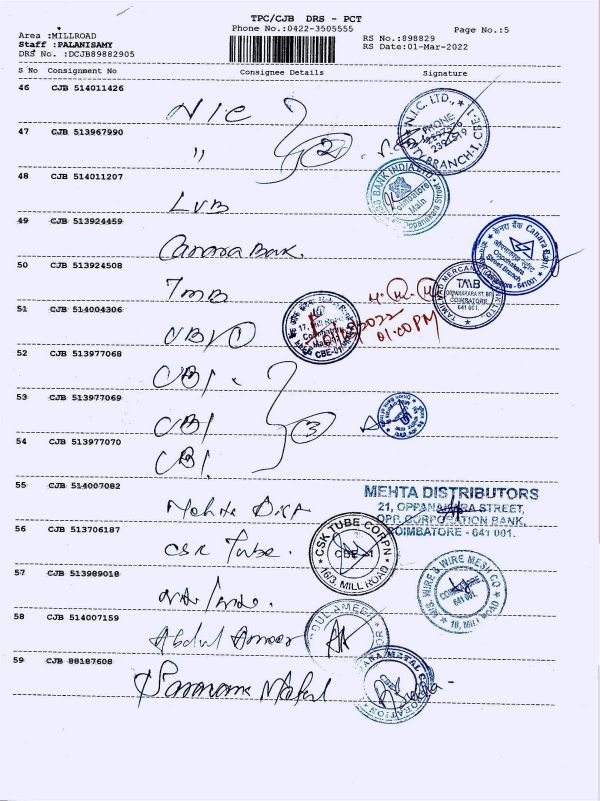 TPC/CJB DRS - PCT
Phone No.:0422-3505555
Page No.:5
Area :MILLROAD
RS No.:898829
Staff :PALANISAMY
RS Date:01-Mar-2022
DRS No. :DCJB89882905
S No Consignment No Consignee Details Signature
46 CJB 514011426
NIC
N.I.C. LTD.,
PHONE
BRANCH-1, CBE-1
47 CJB 513967990
"
2
48 CJB 514011207
LVB
BANK INDIA LTD.
Coimbatore
Main
49 CJB 513924459
Canara Bank.
केनरा बैंक Canara Bank
Oppanakara
Street Branch
Coimbatore - 641001
50 CJB 513924508
TMB
TAMILNAD MERCANTILE BANK LTD.
TMB
OPPANAKARA ST. BR.
COIMBATORE
641 001.
51 CJB 514004306
UBI
CBE-01
01:00 PM
52 CJB 513977068
CBI
53 CJB 513977069
CBI
3
54 CJB 513977070
CBI.
55 CJB 514007082
Mehta Dist
MEHTA DISTRIBUTORS
21, OPPANAKARA STREET,
OPP. CORPORATION BANK,
COIMBATORE - 641 001.
56 CJB 513706187
CSK Tube.
CSK TUBE CORPN
CBE - 1
16/3, MILL ROAD
57 CJB 513989018
M/S. WIRE & WIRE MESH CO
COIMBATORE
641 001.
18, MILL ROAD
58 CJB 514007159
Abdul Ameer
ABDUL AMEER
59 CJB 88187608
Metal
METAL CORPORATION